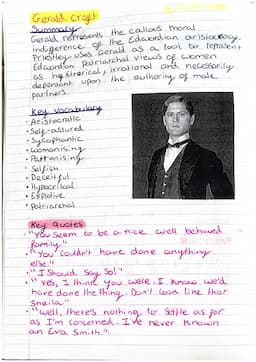 Gerald Croft
Summary
Gerald represents the callous moral
indifference of the Edwardian aristocracy.
Priestley uses Gerald as a tool to represent
Edwardian patriarchal views of women
as hysterical, irrational and necessarily
dependant upon the authority of male
partners.
Key vocabulary
• Aristocratic
• Self-assured
• Sycophantic
• Womanising
• Patronising
• Selfish
• Deceitful
• Hypocritical
• Explotive
• Patriarchal
Key quotes
• "You seem to be a nice well behaved
family."
• "You couldn't have done anything
else."
• "I should say so!"
• "Yes, I think you were. I know we'd
have done the thing. Don't look like that
Sheila."
• "Well, there's nothing to settle as far
as I'm concerned. I've never known
an Eva Smith."